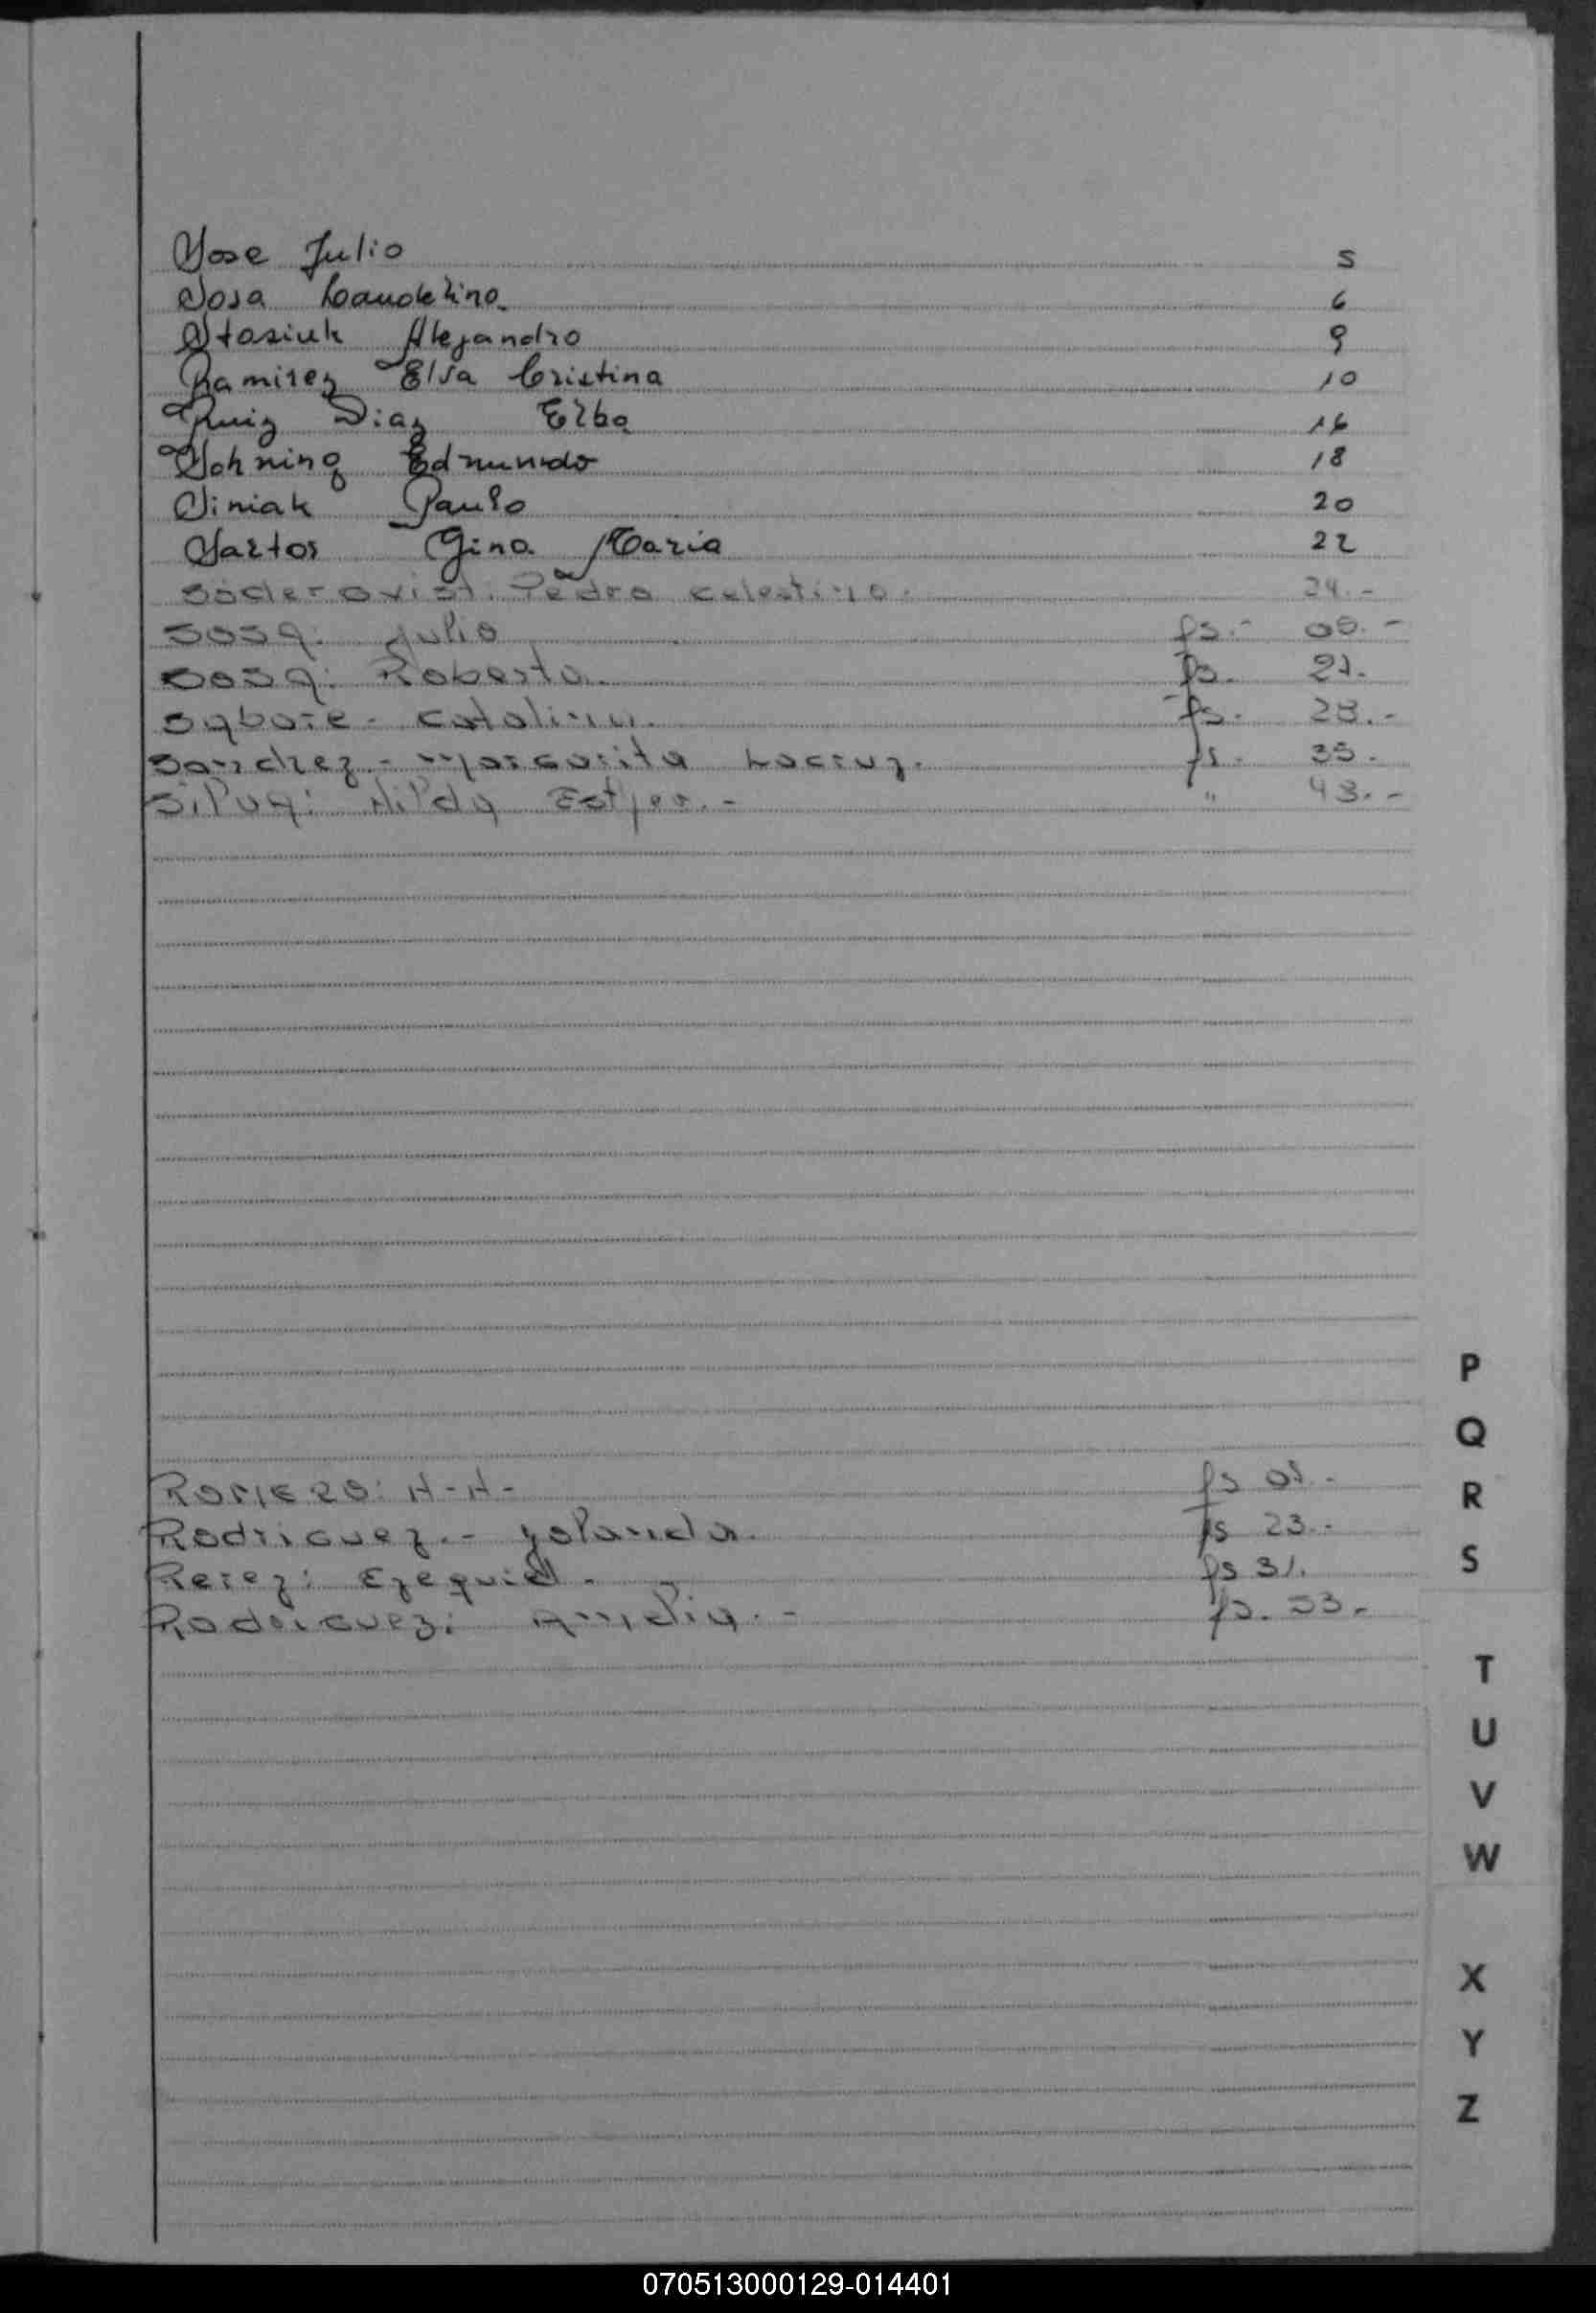 Sose Julio 5
Sosa Candelino 6
Stasiuk Alejandro 9
Ramirez Elsa Cristina 10
Ruiz Diaz Elba 16
Schning Edmundo 18
Siniak Paulo 20
Sartos Gina Maria 22
Söderqvist. Pedro Celestino. 24.-
Sosa: Julio fs.- 06.-
Sosa: Roberto. fs. 21.
Catalina. fs. 28.-
Sanchez - Margarita fs. 35.
Silva: Nilda Ester.- " 43.-
Romero: H-H- fs 01.-
Rodriguez.- Yolanda. fs 23.-
Perez: Ezequiel. fs 31.
Rodriguez: Amelia.- fs. 53.-
P
Q
R
S
T
U
V
W
X
Y
Z
070513000129-014401